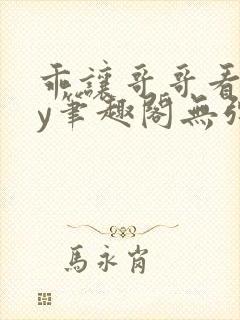 乖讓哥哥看
y筆趣閣無弹
馬永肖